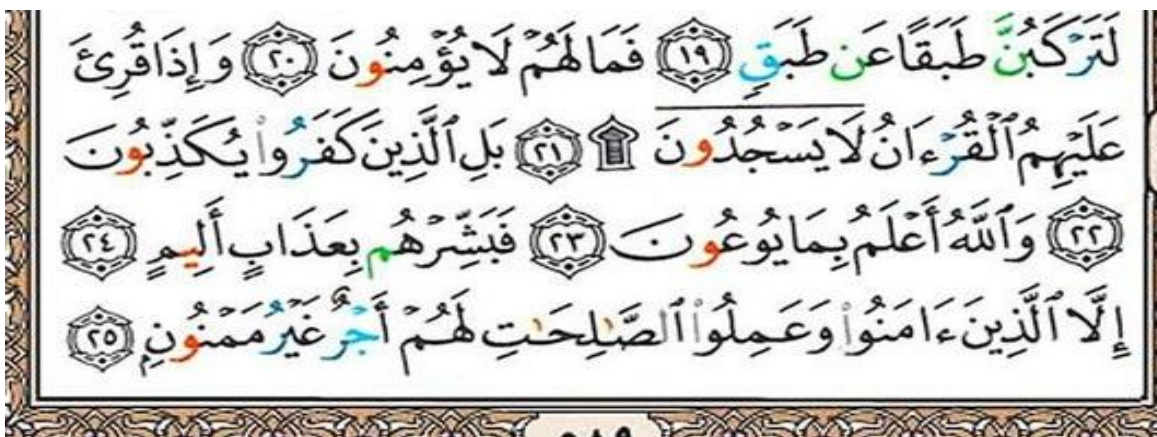 لَتَرْكَبُنَّ طَبَقًا عَن طَبَقٍ ١٩ فَمَا لَهُمْ لَا يُؤْمِنُونَ ٢٠ وَإِذَا قُرِئَ
عَلَيْهِمُ ٱلْقُرْءَانُ لَا يَسْجُدُونَ ۩ ٢١ بَلِ ٱلَّذِينَ كَفَرُوا۟ يُكَذِّبُونَ
٢٢ وَٱللَّهُ أَعْلَمُ بِمَا يُوعُونَ ٢٣ فَبَشِّرْهُم بِعَذَابٍ أَلِيمٍ ٢٤
إِلَّا ٱلَّذِينَ ءَامَنُوا۟ وَعَمِلُوا۟ ٱلصَّـٰلِحَـٰتِ لَهُمْ أَجْرٌ غَيْرُ مَمْنُونٍۭ ٢٥